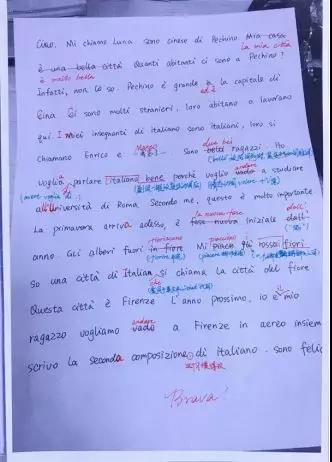 Ciao. Mi chiamo Luna sono cinese di Pechino. Mia casa
la mia città
è una bella città Quanti abitanti ci sono a Pechino?
è molto bella
Infatti, non lo so. Pechino è grande è la capitale di
ed è
Cina Ci sono molti stranieri, loro abitano a lavorano
qui. I miei insegnanti di italiano sono italiani, loro si
Marco due bei
chiamano Enrico e sono belli ragazzi. Ho
andare
voglia parlare italiano bene perché voglio vado a studiare
(avere voglia di
all'Università di Roma Secondo me, questo è molto importante
la nuova fase dell'
La primavera arriva adesso, è fase nuova iniziale dall'
fioriscono piacciono
anno. Gli alberi fuori in fiore Mi piace più rossa fiori
So una città di Italia si chiama La città del fiore
che
Questa città è Firenze L'anno prossimo, io e mio
il
andare
ragazzo vogliamo vado a Firenze in aereo insiem
scrivo la seconda composizione di italiano. sono felic
Brava!